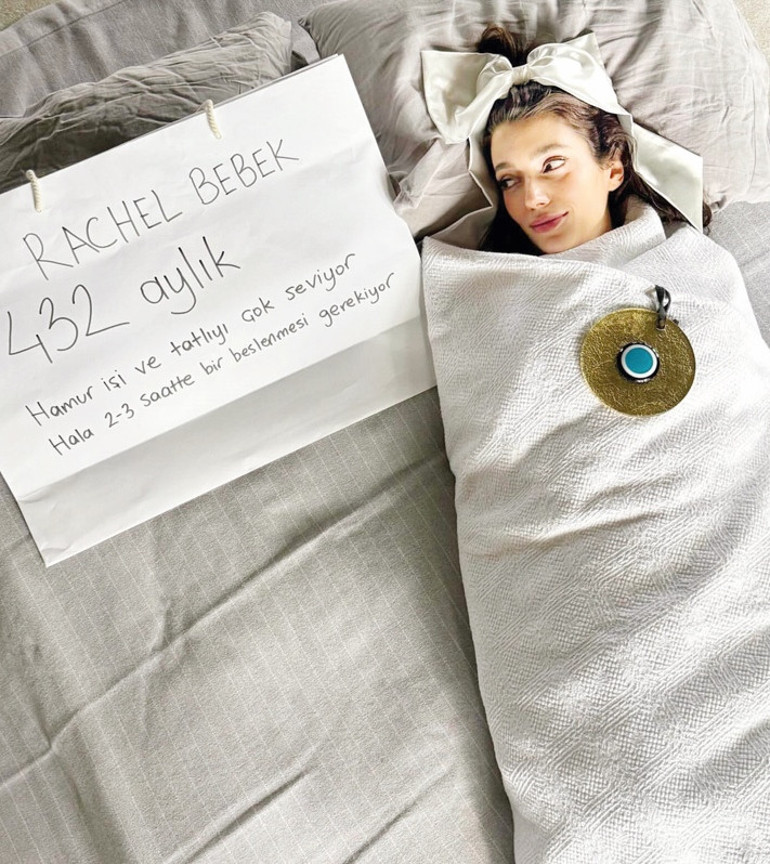 RACHEL BEBEK
432 aylık
Hamur işi ve tatlıyı çok seviyor
Hala 2-3 saatte bir beslenmesi gerekiyor